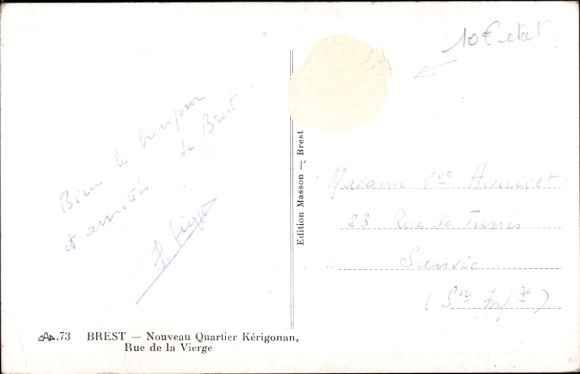 10 € etat
Bien le bonjour
et amitiés de Brest.
Edition Masson — Brest
Madame Vve
23 Rue de Tunis
Sanvic
(Sne Infre)
73 BREST — Nouveau Quartier Kérigonan,
Rue de la Vierge